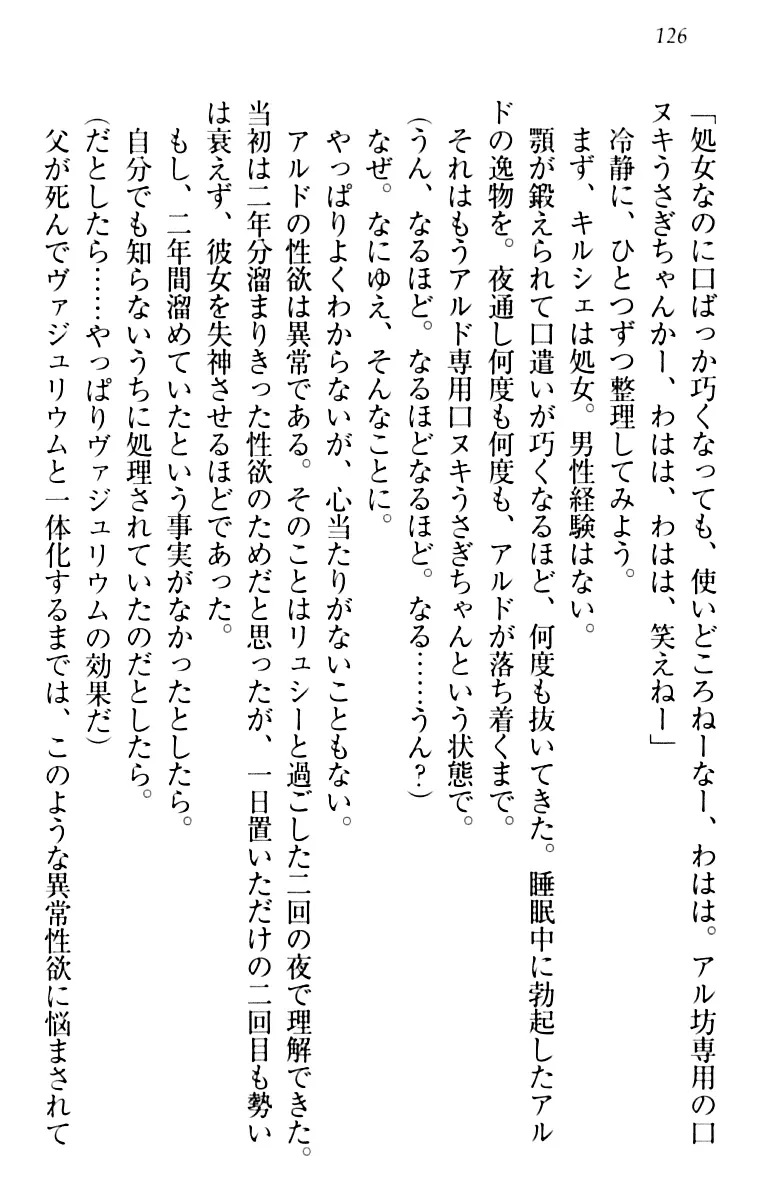 126
「処女なのに口ばっか巧くなっても、使いどころねーなー、わはは。アル坊専用の口
ヌキうさぎちゃんかー、わはは、わはは、笑えねー」
冷静に、ひとつずつ整理してみよう。
まず、キルシェは処女。男性経験はない。
顎が鍛えられて口遣いが巧くなるほど、何度も抜いてきた。睡眠中に勃起したアル
ドの逸物を。夜通し何度も何度も、アルドが落ち着くまで。
それはもうアルド専用口ヌキうさぎちゃんという状態で。
(うん、なるほど。なるほどなるほど。なる……うん?)
なぜ。なにゆえ、そんなことに。
やっぱりよくわからないが、心当たりがないこともない。
アルドの性欲は異常である。そのことはリュシーと過ごした二回の夜で理解できた。
当初は二年分溜まりきった性欲のためだと思ったが、一日置いただけの二回目も勢い
は衰えず、彼女を失神させるほどであった。
もし、二年間溜めていたという事実がなかったとしたら。
自分でも知らないうちに処理されていたのだとしたら。
(だとしたら……やっぱりヴァジュリウムの効果だ)
父が死んでヴァジュリウムと一体化するまでは、このような異常性欲に悩まされて